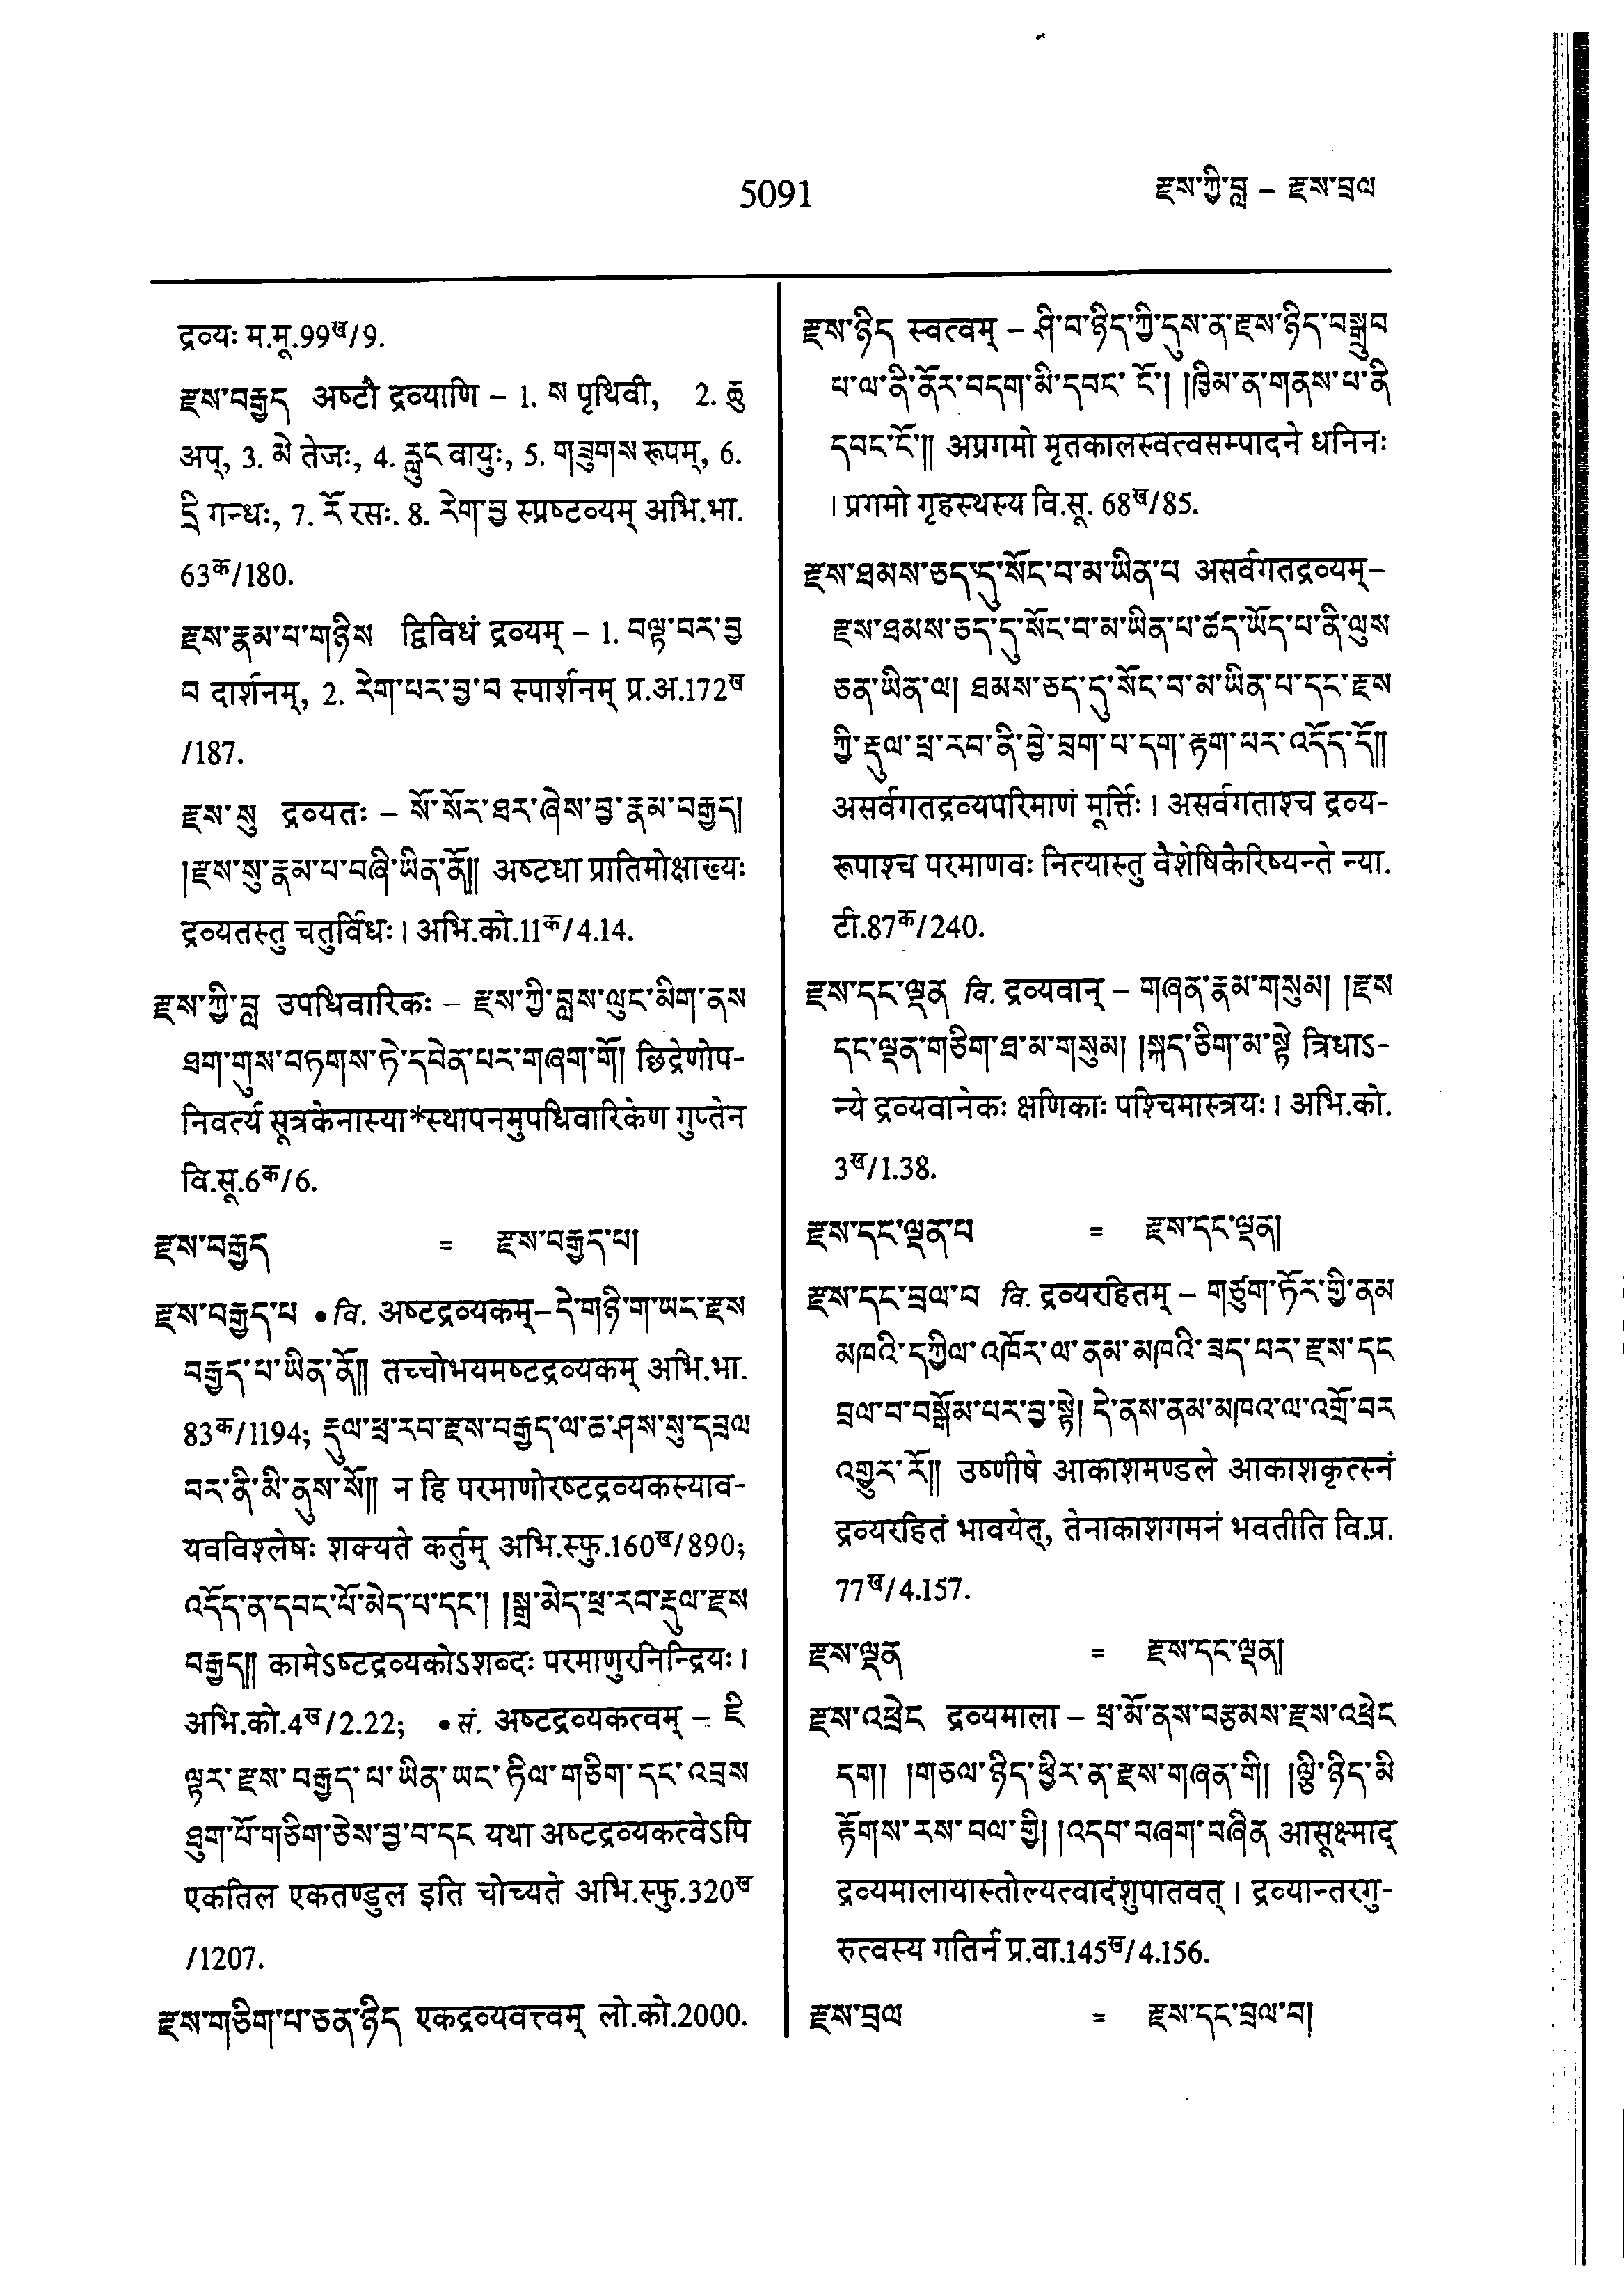 5091
རྫས་ཀྱི་བླ – རྫས་བྲལ
द्रव्यः म.मू.99ख/9.
རྫས་བརྒྱད अष्टौ द्रव्याणि – 1. ས पृथिवी, 2. ཆུ
अप्, 3. མེ तेजः, 4. རླུང वायुः, 5. གཟུགས रूपम्, 6.
དྲི गन्धः, 7. རོ रसः. 8. རེག་བྱ स्प्रष्टव्यम् अभि.भा.
63क/180.
རྫས་རྣམ་པ་གཉིས द्विविधं द्रव्यम् – 1. བལྟ་བར་བྱ
བ दार्शनम्, 2. རེག་པར་བྱ་བ स्पार्शनम् प्र.अ.172ख
/187.
རྫས་སུ द्रव्यतः – སོ་སོར་ཐར་ཞེས་བྱ་རྣམ་བརྒྱད།
།རྫས་སུ་རྣམ་པ་བཞི་ཡིན་ནོ།། अष्टधा प्रातिमोक्षाख्यः
द्रव्यतस्तु चतुर्विधः। अभि.को.11क/4.14.
རྫས་ཀྱི་བླ उपधिवारिकः – རྫས་ཀྱི་བླས་ལུང་མིག་ནས
ཐག་གུས་བཏགས་ཏེ་དབེན་པར་གཞག་གོ། छिद्रेणोप-
निवर्त्य सूत्रकेनास्या*स्थापनमुपधिवारिकेण गुप्तेन
वि.सू.6क/6.
རྫས་བརྒྱད = རྫས་བརྒྱད་པ།
རྫས་བརྒྱད་པ • वि. अष्टद्रव्यकम्–དེ་གཉི་ག་ཡང་རྫས
བརྒྱད་པ་ཡིན་ནོ།། तच्चोभयमष्टद्रव्यकम् अभि.भा.
83क/1194; རྡུལ་ཕྲ་རབ་རྫས་བརྒྱད་ལ་ཆ་ཤས་སུ་དབྲལ
བར་ནི་མི་ནུས་སོ།། न हि परमाणोरष्टद्रव्यकस्याव-
यवविश्लेषः शक्यते कर्तुम् अभि.स्फु.160ख/890;
འདོད་ན་དབང་པོ་མེད་པ་དང་། །སྒྲ་མེད་ཕྲ་རབ་རྡུལ་རྫས
བརྒྱད།། कामेऽष्टद्रव्यकोऽशब्दः परमाणुरनिन्द्रियः।
अभि.को.4ख/2.22; • सं. अष्टद्रव्यकत्वम् – ཇི
ལྟར་རྫས་བརྒྱད་པ་ཡིན་ཡང་ཏིལ་གཅིག་དང་འབྲས
ཐུག་པོ་གཅིག་ཅེས་བྱ་བ་དང यथा अष्टद्रव्यकत्वेऽपि
एकतिल एकतण्डुल इति चोच्यते अभि.स्फु.320ख
/1207.
རྫས་གཅིག་པ་ཅན་ཉིད एकद्रव्यवत्त्वम् लो.को.2000.
རྫས་ཉིད स्वत्वम् – ཤི་བ་ཉིད་ཀྱི་དུས་ན་རྫས་ཉིད་བསྒྲུབ
པ་ལ་ནི་ནོར་བདག་མི་དབང་ངོ་། །ཁྱིམ་ན་གནས་པ་ནི
དབང་ངོ་།། अप्रगमो मृतकालस्वत्वसम्पादने धनिनः
। प्रगमो गृहस्थस्य वि.सू. 68ख/85.
རྫས་ཐམས་ཅད་དུ་སོང་བ་མ་ཡིན་པ असर्वगतद्रव्यम्–
རྫས་ཐམས་ཅད་དུ་སོང་བ་མ་ཡིན་པ་ཚད་ཡོད་པ་ནི་ལུས
ཅན་ཡིན་ལ། ཐམས་ཅད་དུ་སོང་བ་མ་ཡིན་པ་དང་རྫས
ཀྱི་རྡུལ་ཕྲ་རབ་ནི་བྱེ་བྲག་པ་དག་རྟག་པར་འདོད་དོ།།
असर्वगतद्रव्यपरिमाणं मूर्त्तिः। असर्वगताश्च द्रव्य-
रूपाश्च परमाणवः नित्यास्तु वैशेषिकैरिष्यन्ते न्या.
टी.87क/240.
རྫས་དང་ལྡན वि. द्रव्यवान् – གཞན་རྣམ་གསུམ། །རྫས
དང་ལྡན་གཅིག་ཐ་མ་གསུམ། །སྐད་ཅིག་མ་སྟེ त्रिधाऽ-
न्ये द्रव्यवानेकः क्षणिकाः पश्चिमास्त्रयः। अभि.को.
3ख/1.38.
རྫས་དང་ལྡན་པ = རྫས་དང་ལྡན།
རྫས་དང་བྲལ་བ वि. द्रव्यरहितम् – གཙུག་ཏོར་གྱི་ནམ
མཁའི་དཀྱིལ་འཁོར་ལ་ནམ་མཁའི་ཟད་པར་རྫས་དང
བྲལ་བ་བསྒོམ་པར་བྱ་སྟེ། དེ་ནས་ནམ་མཁའ་ལ་འགྲོ་བར
འགྱུར་རོ།། उष्णीषे आकाशमण्डले आकाशकृत्स्नं
द्रव्यरहितं भावयेत्, तेनाकाशगमनं भवतीति वि.प्र.
77ख/4.157.
རྫས་ལྡན = རྫས་དང་ལྡན།
རྫས་འཕྲེང द्रव्यमाला – ཕྲ་མོ་ནས་བརྩམས་རྫས་འཕྲེང
དག། །གཅལ་ཉིད་ཕྱིར་ན་རྫས་གཞན་གི། །ལྕི་ཉིད་མི
རྟོགས་རས་བལ་གྱི། །འདབ་བཞག་བཞིན आसूक्ष्माद्
द्रव्यमालायास्तोल्यत्वादंशुपातवत्। द्रव्यान्तरगु-
रुत्वस्य गतिर्न प्र.वा.145ख/4.156.
རྫས་བྲལ = རྫས་དང་བྲལ་བ།